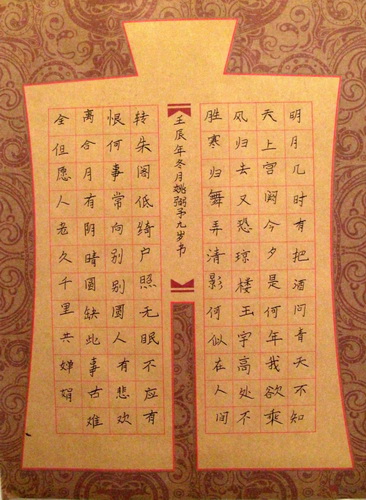 明月几时有把酒问青天不知
天上宫阙今夕是何年我欲乘
风归去又恐琼楼玉宇高处不
胜寒归舞弄清影何似在人间
壬辰年冬月姚弼予九岁书
转朱阁低绮户照无眠不应有
恨何事常向别别圆人有悲欢
离合月有阴晴圆缺此事古难
全但愿人长久千里共婵娟